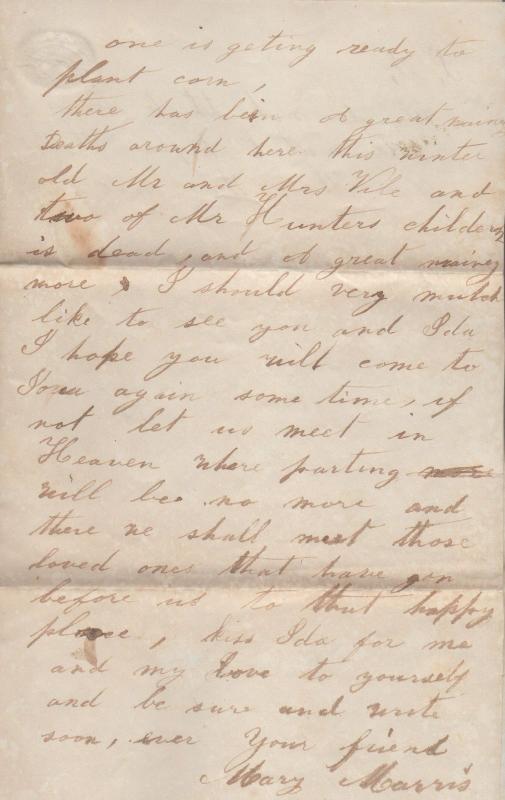 one is geting ready to
plant corn,
there has bein of great mainy
Deaths around here this winter
old Mr and Mrs Vile and
two of Mr Hunters childern
is dead, and of great mainy
more, I should very mutch
like to see you and Ida
I hope you will come to
Ioua again some time, if
not let us meet in
Heaven where parting
will be no more and
there we shall meet those
loved ones that have gon
before us to that happy
place, kiss Ida for me
and my love to yourself
and be sure and write
soon, ever Your friend
Mary Marris